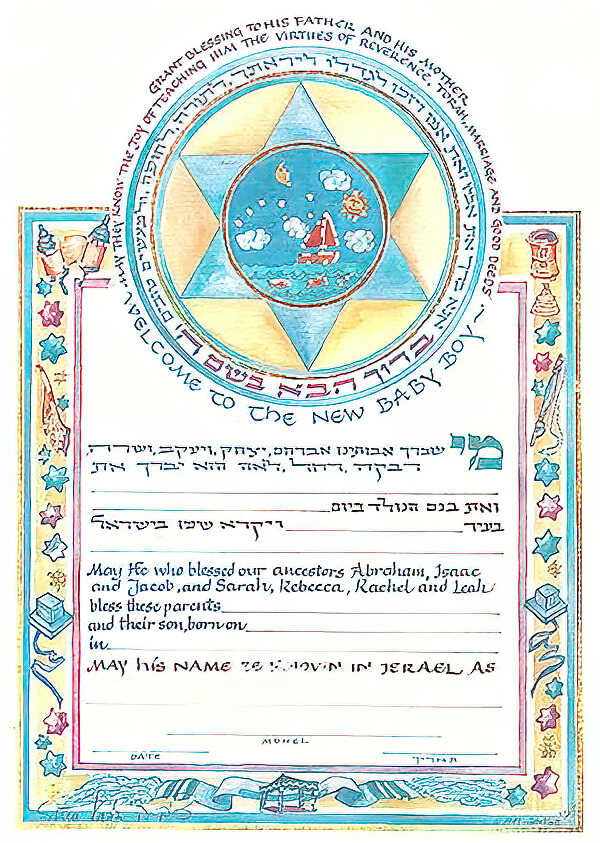 GRANT BLESSING TO HIS FATHER AND HIS MOTHER
MAY THEY KNOW THE JOY OF TEACHING HIM THE VIRTUES OF REVERENCE, TORAH, MARRIAGE AND GOOD DEEDS
ברוך הבא בשם ה'
WELCOME TO THE NEW BABY BOY
מי שברך אבותינו אברהם, יצחק, ויעקב, ושרה,
רבקה, רחל, לאה הוא יברך את
ואת בנם הנולד ביום
בעיר ויקרא שמו בישראל
May He who blessed our ancestors Abraham, Isaac
and Jacob, and Sarah, Rebecca, Rachel and Leah
bless these parents
and their son, born on
in
MAY HIS NAME BE KNOWN IN ISRAEL AS
MOHEL
DATE תאריך